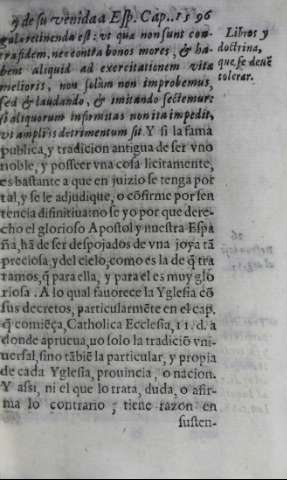 y de su venida a Esp. Cap..15 96
gula retinenda est: vt qua non sunt con-
tra fidem, nec contra bonos mores, & ha-
bent aliquid ad exercitationem vita
melioris, non solum non improbemus,
sed & laudando, & imitando sectemur:
si aliquorum infirmitas non ita impedit,
vt amplius detrimentum sit. Y si la fama
publica, y tradicion antigua de ser vno
noble, y posseer vna cosa licitamente,
es bastante a que en juizio se tenga por
tal, y se le adjudique, o cõfirme por sen
tencia difinitiua: no se yo por que dere-
cho el glorioso Apostol y nuestra Espa
ña, hã de ser despojados de vna joya tã
preciosa, y del cielo, como es la de q̃ tra
tamos, q̃ para ella, y para el es muy glo
riosa. A lo qual fauorece la Yglesia cõ
sus decretos, particularmẽte en el cap.
q̃ comiẽça, Catholica Ecclesia, 11. d. a
donde aprueua, no solo la tradiciõ vni-
uersal, sino tãbiẽ la particular, y propia
de cada Yglesia, prouincia, o nacion.
Y assi, ni el que lo trata, duda, o afir-
ma lo contrario, tiene razon en
susten-
Libros y
doctrina,
que se deuẽ
tolerar.